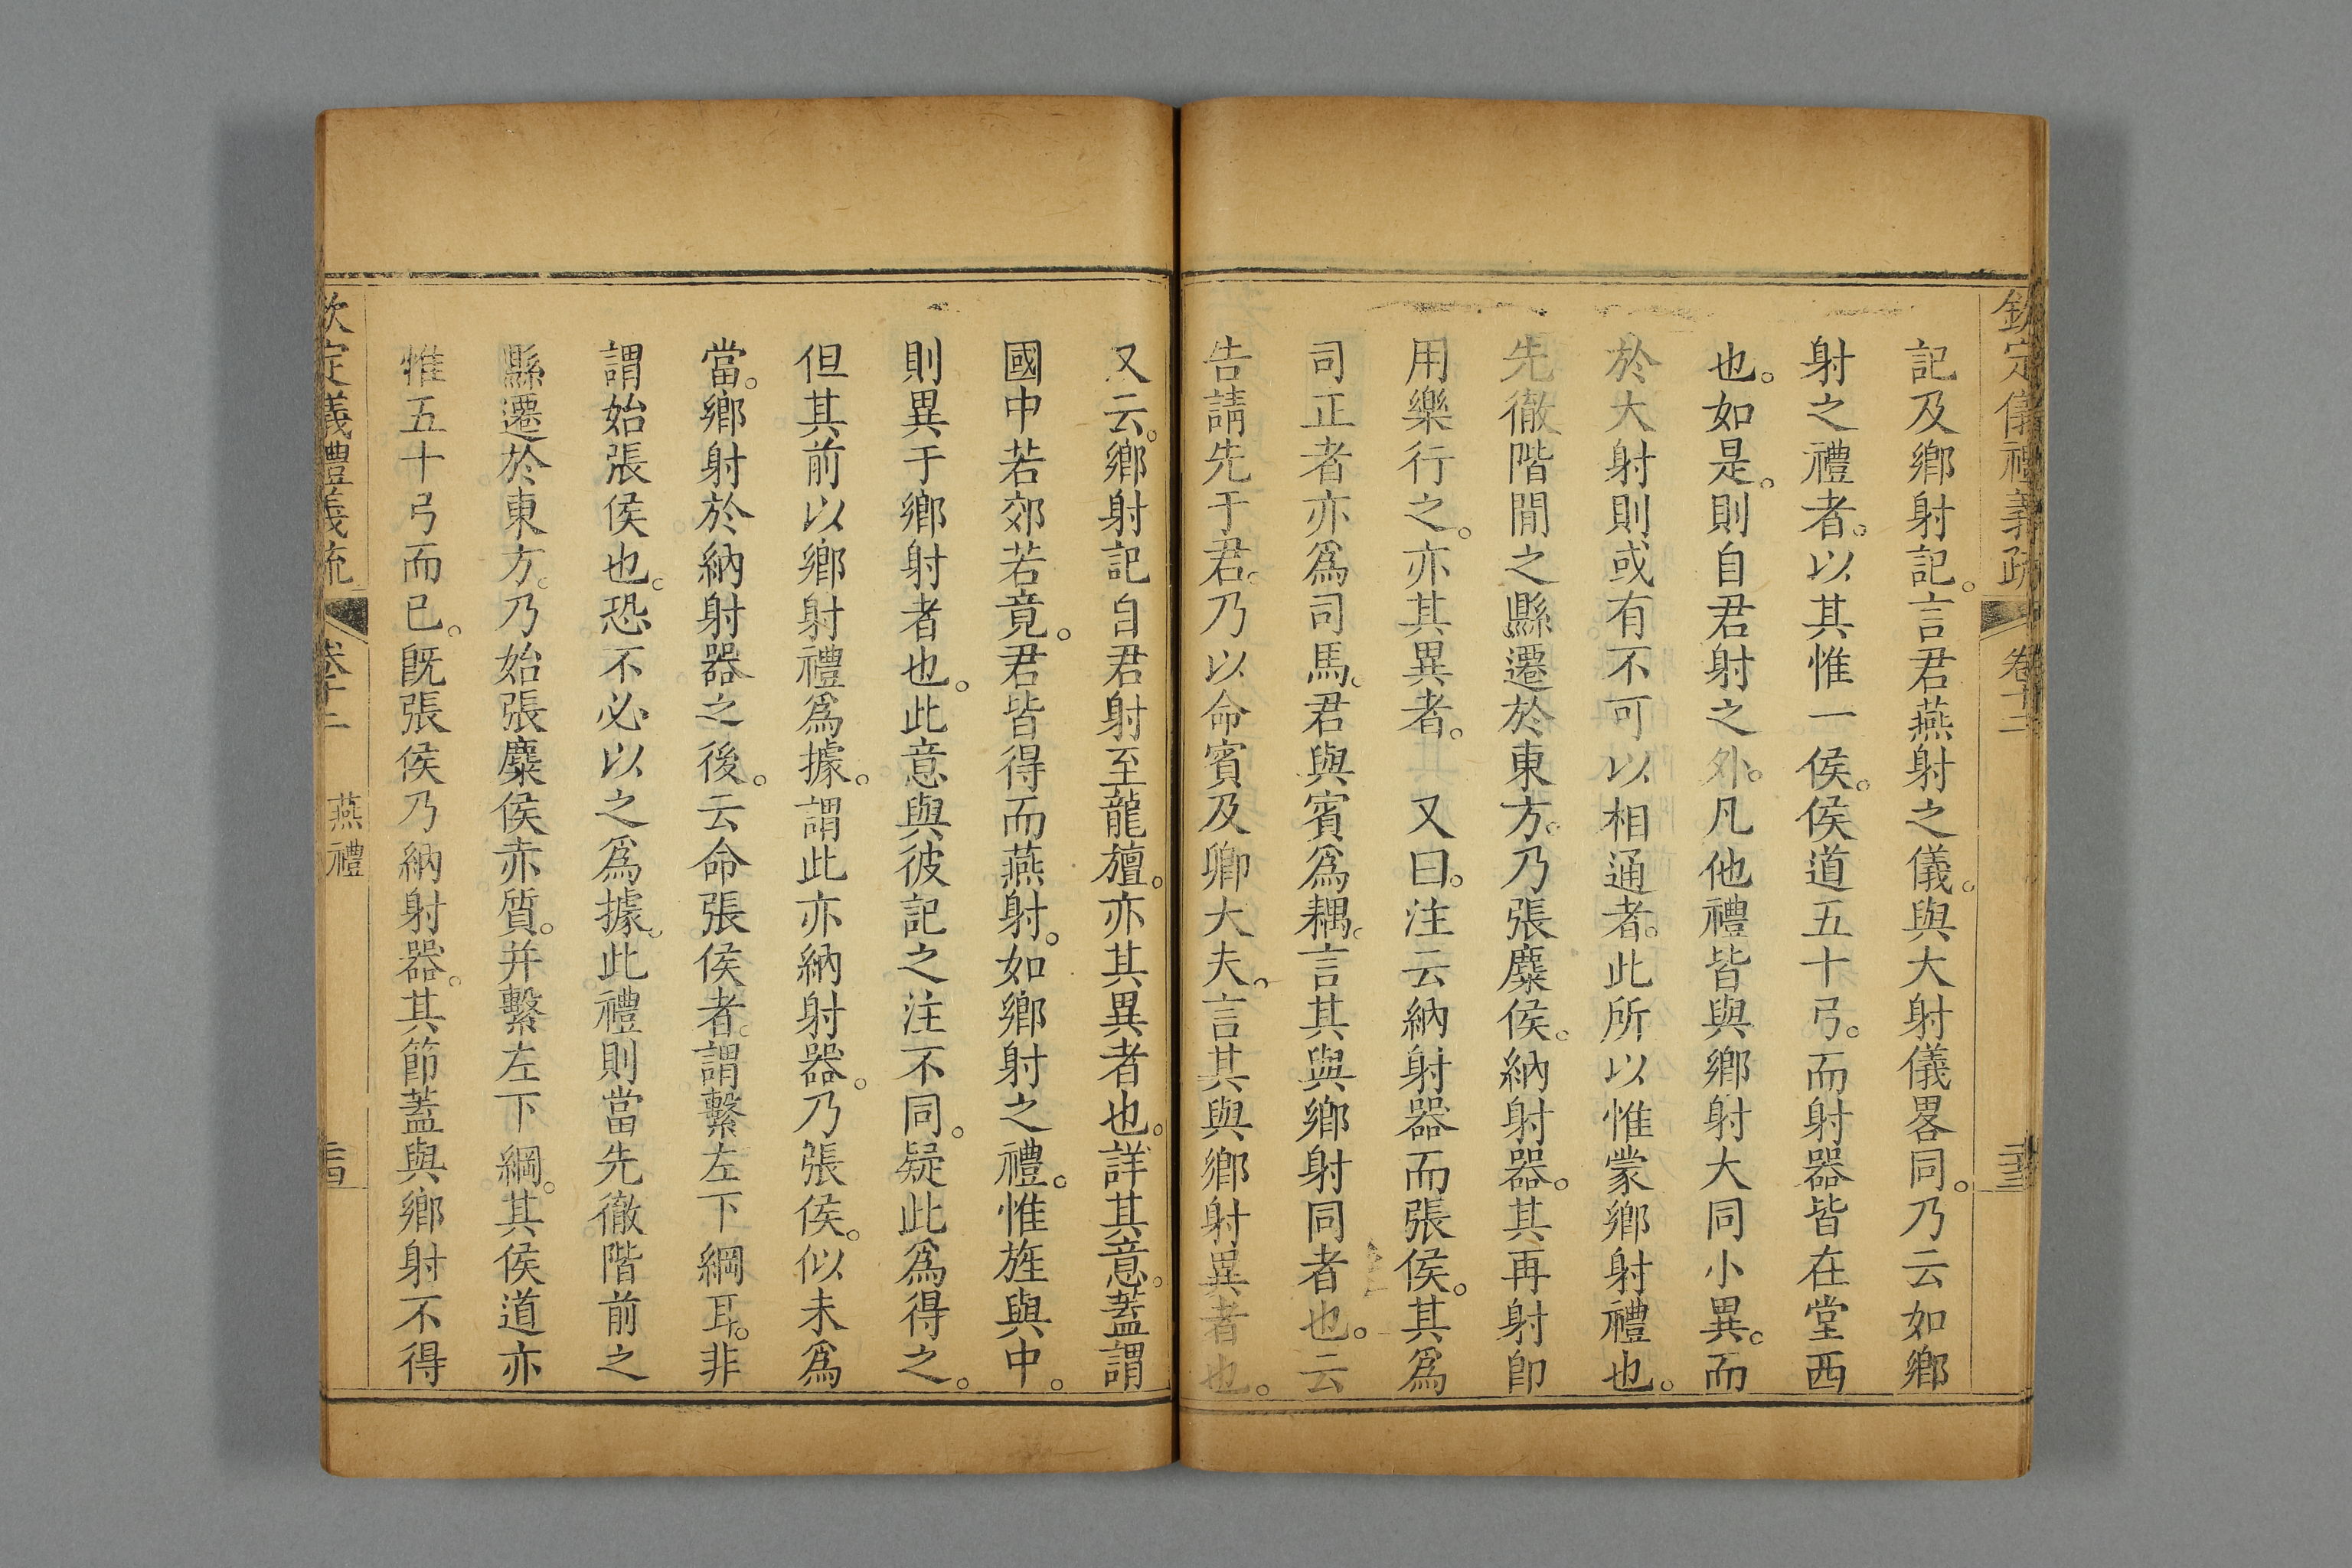 欽定儀禮義疏 卷十二
記及鄉射記。言君燕射之儀。與大射儀畧同。乃云如鄉
射之禮者。以其惟一侯。侯道五十弓。而射器皆在堂西
也。如是。則自君射之外。凡他禮皆與鄉射大同小異。而
於大射則或有不可以相通者。此所以惟蒙鄉射禮也。
先徹階間之縣遷於東方。乃張麋侯。納射器。其再射卽
用樂行之。亦其異者。 又曰。注云納射器而張侯。其爲
司正者亦爲司馬。君與賓爲耦。言其與鄉射同者也。云
告請先于君。乃以命賓及卿大夫。言其與鄉射異者也。
又云。鄉射記自君射至龍旜。亦其異者也。詳其意。蓋謂
國中若郊若竟。君皆得而燕射。如鄉射之禮。惟旌與中。
則異于鄉射者也。此意與彼記之注不同。疑此爲得之。
但其前以鄉射禮爲據。謂此亦納射器。乃張侯。似未爲
當。鄉射於納射器之後。云命張侯者。謂繫左下綱耳。非
謂始張侯也。恐不必以之爲據。此禮則當先徹階前之
縣遷於東方。乃始張麋侯赤質。并繫左下綱。其侯道亦
惟五十弓而已。旣張侯乃納射器。其節蓋與鄉射不得
欽定儀禮義疏 卷十二 燕禮